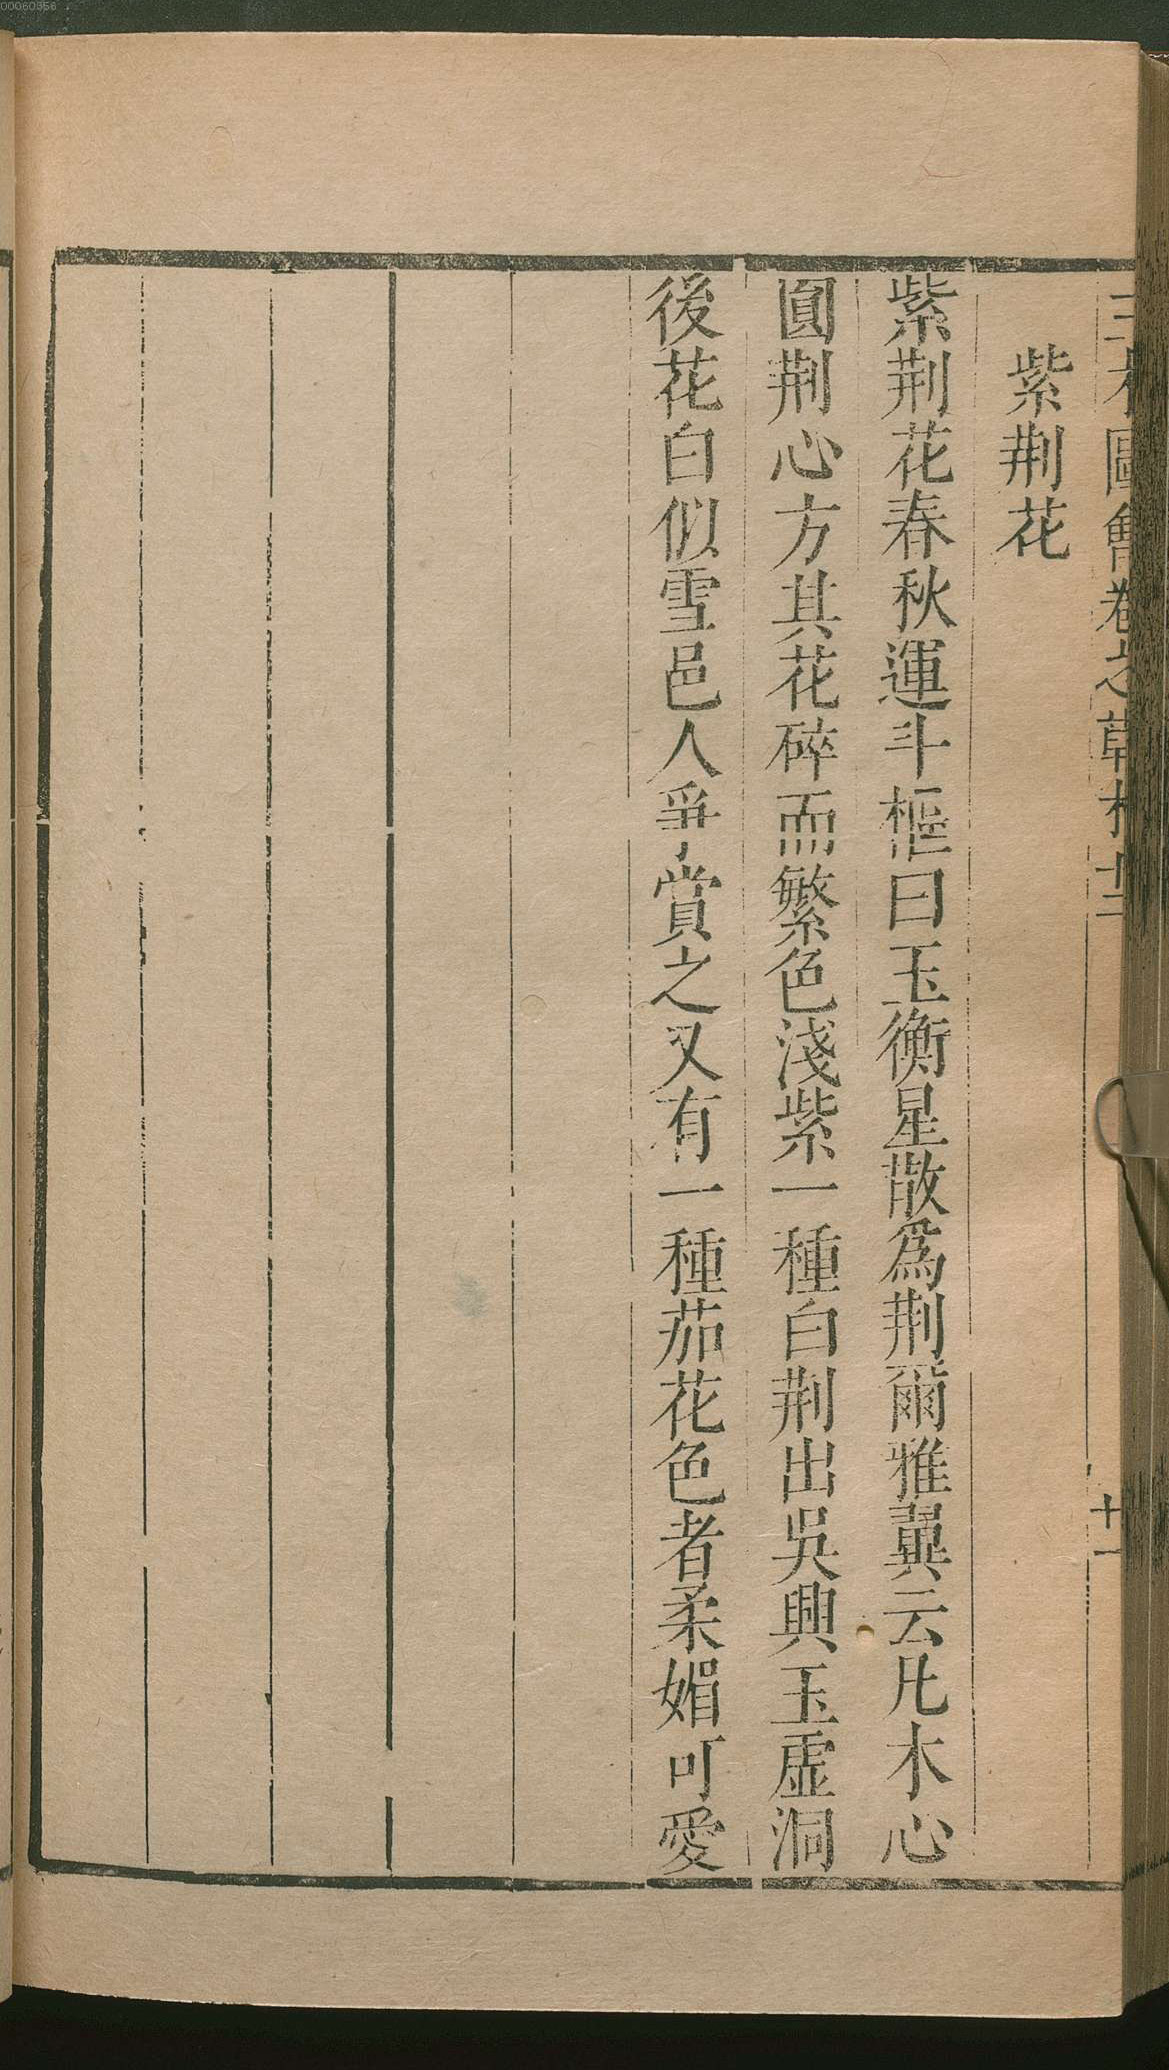 00060356
三才圖會卷之草木十二
十一
紫荆花
紫荆花春秋運斗樞曰玉衡星散爲荆爾雅翼云凡木心
圓荆心方其花碎而繁色淺紫一種白荆出吳興玉虛洞
後花白似雪邑人爭賞之又有一種茄花色者柔媚可愛